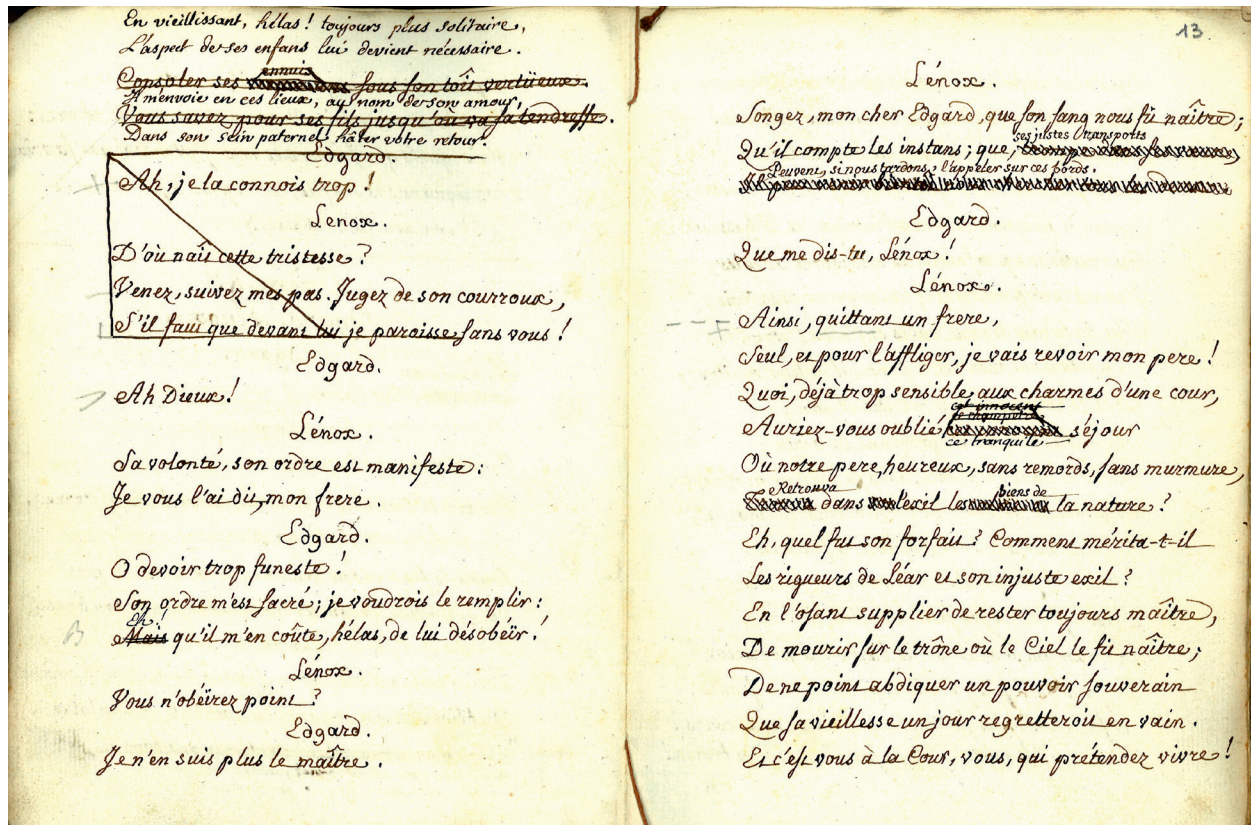 En vieillissant, hélas ! toujours plus solitaire,
L'aspect de ses enfans lui devient nécessaire.
ennuis
Consoler ses sous son toît vertüeux.
M'envoie en ces lieux, au nom de son amour,
Vous savez pour ses fils jusqu'où va sa tendresse.
Dans son sein paternel hâter votre retour.
Edgard.
Ah, je la connois trop !
Lénox.
D'où naît cette tristesse ?
Venez, suivez mes pas. Jugez de son courroux,
S'il faut que devant lui je paroisse sans vous !
Edgard.
Ah Dieux !
Lénox.
Sa volonté, son ordre est manifeste :
Je vous l'ai dit, mon frere.
Edgard.
O devoir trop funeste !
Son ordre m'est sacré ; je voudrois le remplir :
Eh !
Mais qu'il m'en coûte, hélas, de lui désobéïr !
Lénox.
Vous n'obéïrez point ?
Edgard.
Je n'en suis plus le maître.
13
Lénox.
Songez, mon cher Edgard, que son sang nous fit naître ;
ses justes transports
Qu'il compte les instans ; que,
Peuvent, si nous tardons, l'appeler sur ces bords.
Edgard.
Que me dis-tu, Lénox !
Lénox.
Ainsi, quittant un frere,
Seul, et pour l'affliger, je vais revoir mon pere !
Quoi, déjà trop sensible aux charmes d'une cour,
cet innocent
le champêtre
Auriez-vous oublié séjour
ce tranquile
Où notre pere, heureux, sans remords, sans murmure,
Retrouva biens de
dans l'exil les la nature ?
Eh, quel fut son forfait ? Comment mérita-t-il
Les rigueurs de Léar et son injuste exil ?
En l'osant supplier de rester toujours maître,
De mourir sur le trône où le Ciel le fit naître ;
De ne point abdiquer un pouvoir souverain
Que sa vieillesse un jour regretteroit en vain.
Et c'est vous à la Cour, vous, qui prétendez vivre !